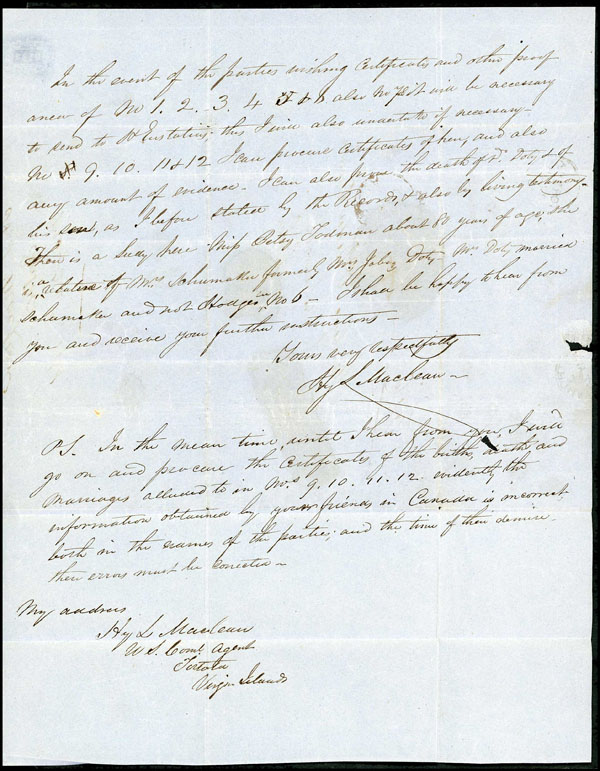 In the event of the parties wishing Certificates and other proof
anew of No 1. 2. 3. 4 5 & 8 also No 7 it will be necessary
to send to St Eustatius, this I will also undertake if necessary -
No 9. 10. 11 & 12 I can procure Certificates of here, and also
any amount of evidence - I can also prove the death of Dr Doty & of
his son, as I before stated by the Records, & also by living testimony -
There is a Lady here Miss Betsy Todman about 80 years of age, she
is a relation of Mrs Schumaker formerly Mrs Doty Mr Doty married
Schumaker and not Hodge in No 6 - I shall be happy to hear from
you and receive your further instructions -
Yours very respectfully
Hy L Maclean -
P.S. In the mean time until I hear from you, I will
go on and procure the Certificates of the birth, deaths and
Marriages alluded to in Nos 9. 10. 11. 12. evidently the
information obtained by your friends in Canada is incorrect
both in the names of the parties, and the time of their demise.
these errors must be corrected -
My address
Hy L Maclean
U S. Coml. Agent
Tortola
Virgin Islands